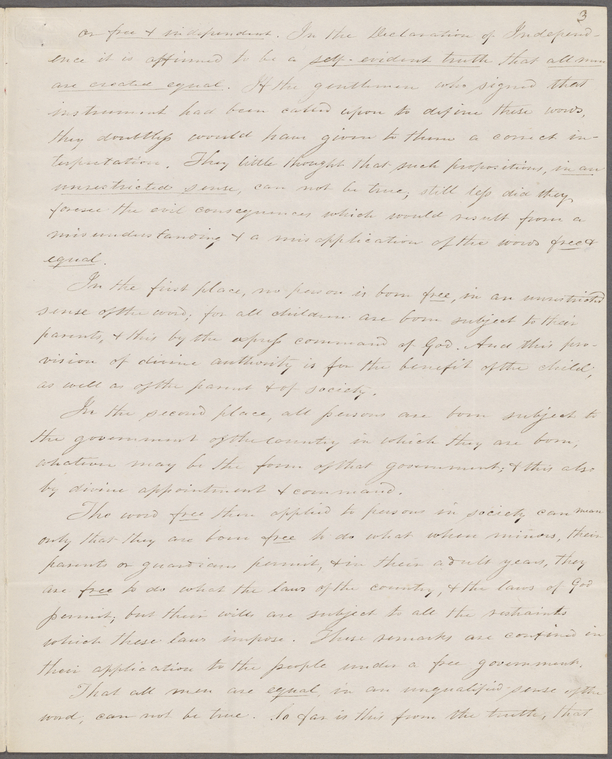 3
or free & independent. In the Declaration of Independ-
ence it is affirmed to be a self-evident truth that all men
are created equal. If the gentlemen who signed that
instrument had been called upon to define these words,
they doubtless would have given to them a correct in-
terpretation. They little thought that such propositions, in an
unrestricted sense, can not be true; still less did they
foresee the evil consequences which would result from a
misunderstanding & a misapplication of the words free &
equal.
In the first place, no person is born free, in an unrestricted
sense of the word; for all children are born subject to their
parents, & this by the express command of God. And this pro-
vision of divine authority is for the benefit of the child,
as well as of the parent & of society.
In the second place, all persons are born subject to
the government of the country in which they are born,
whatever may be the form of that government; & this also
by divine appointment & command.
The word free then applied to persons in society can mean
only that they are born free to do what when minors, their
parents or guardians permit, & in their adult years, they
are free to do what the laws of the country, & the laws of God
permit; but their wills are subject to all the restraints
which these laws impose. These remarks are confined in
their application to the people under a free government.
That all men are equal, in an unqualified sense of the
word, can not be true. So far is this from the truth, that